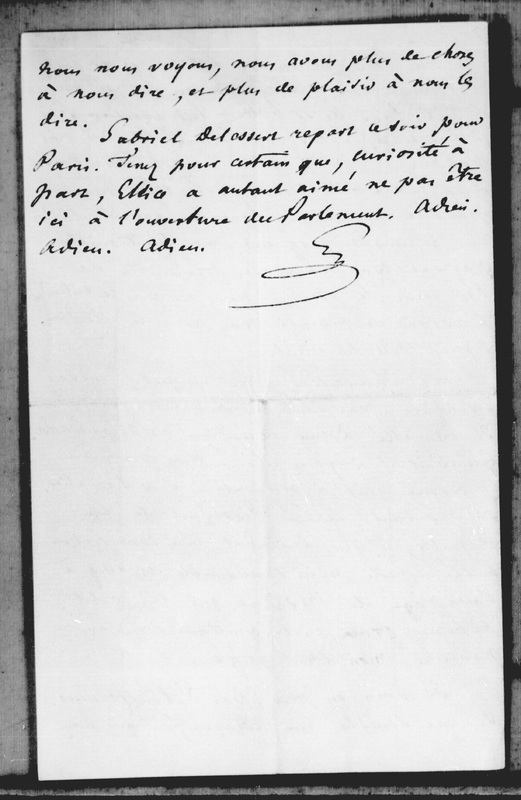 nous nous voyons, nous avons plus de choses
à nous dire, et plus de plaisir à nous les
dire.
Gabriel Delessert repart ce soir pour
Paris. Tenez pour certain que, curiosité à
part, Ellice a autant aimé ne pas être
ici à l'ouverture du Parlement. Adieu.
Adieu. Adieu.